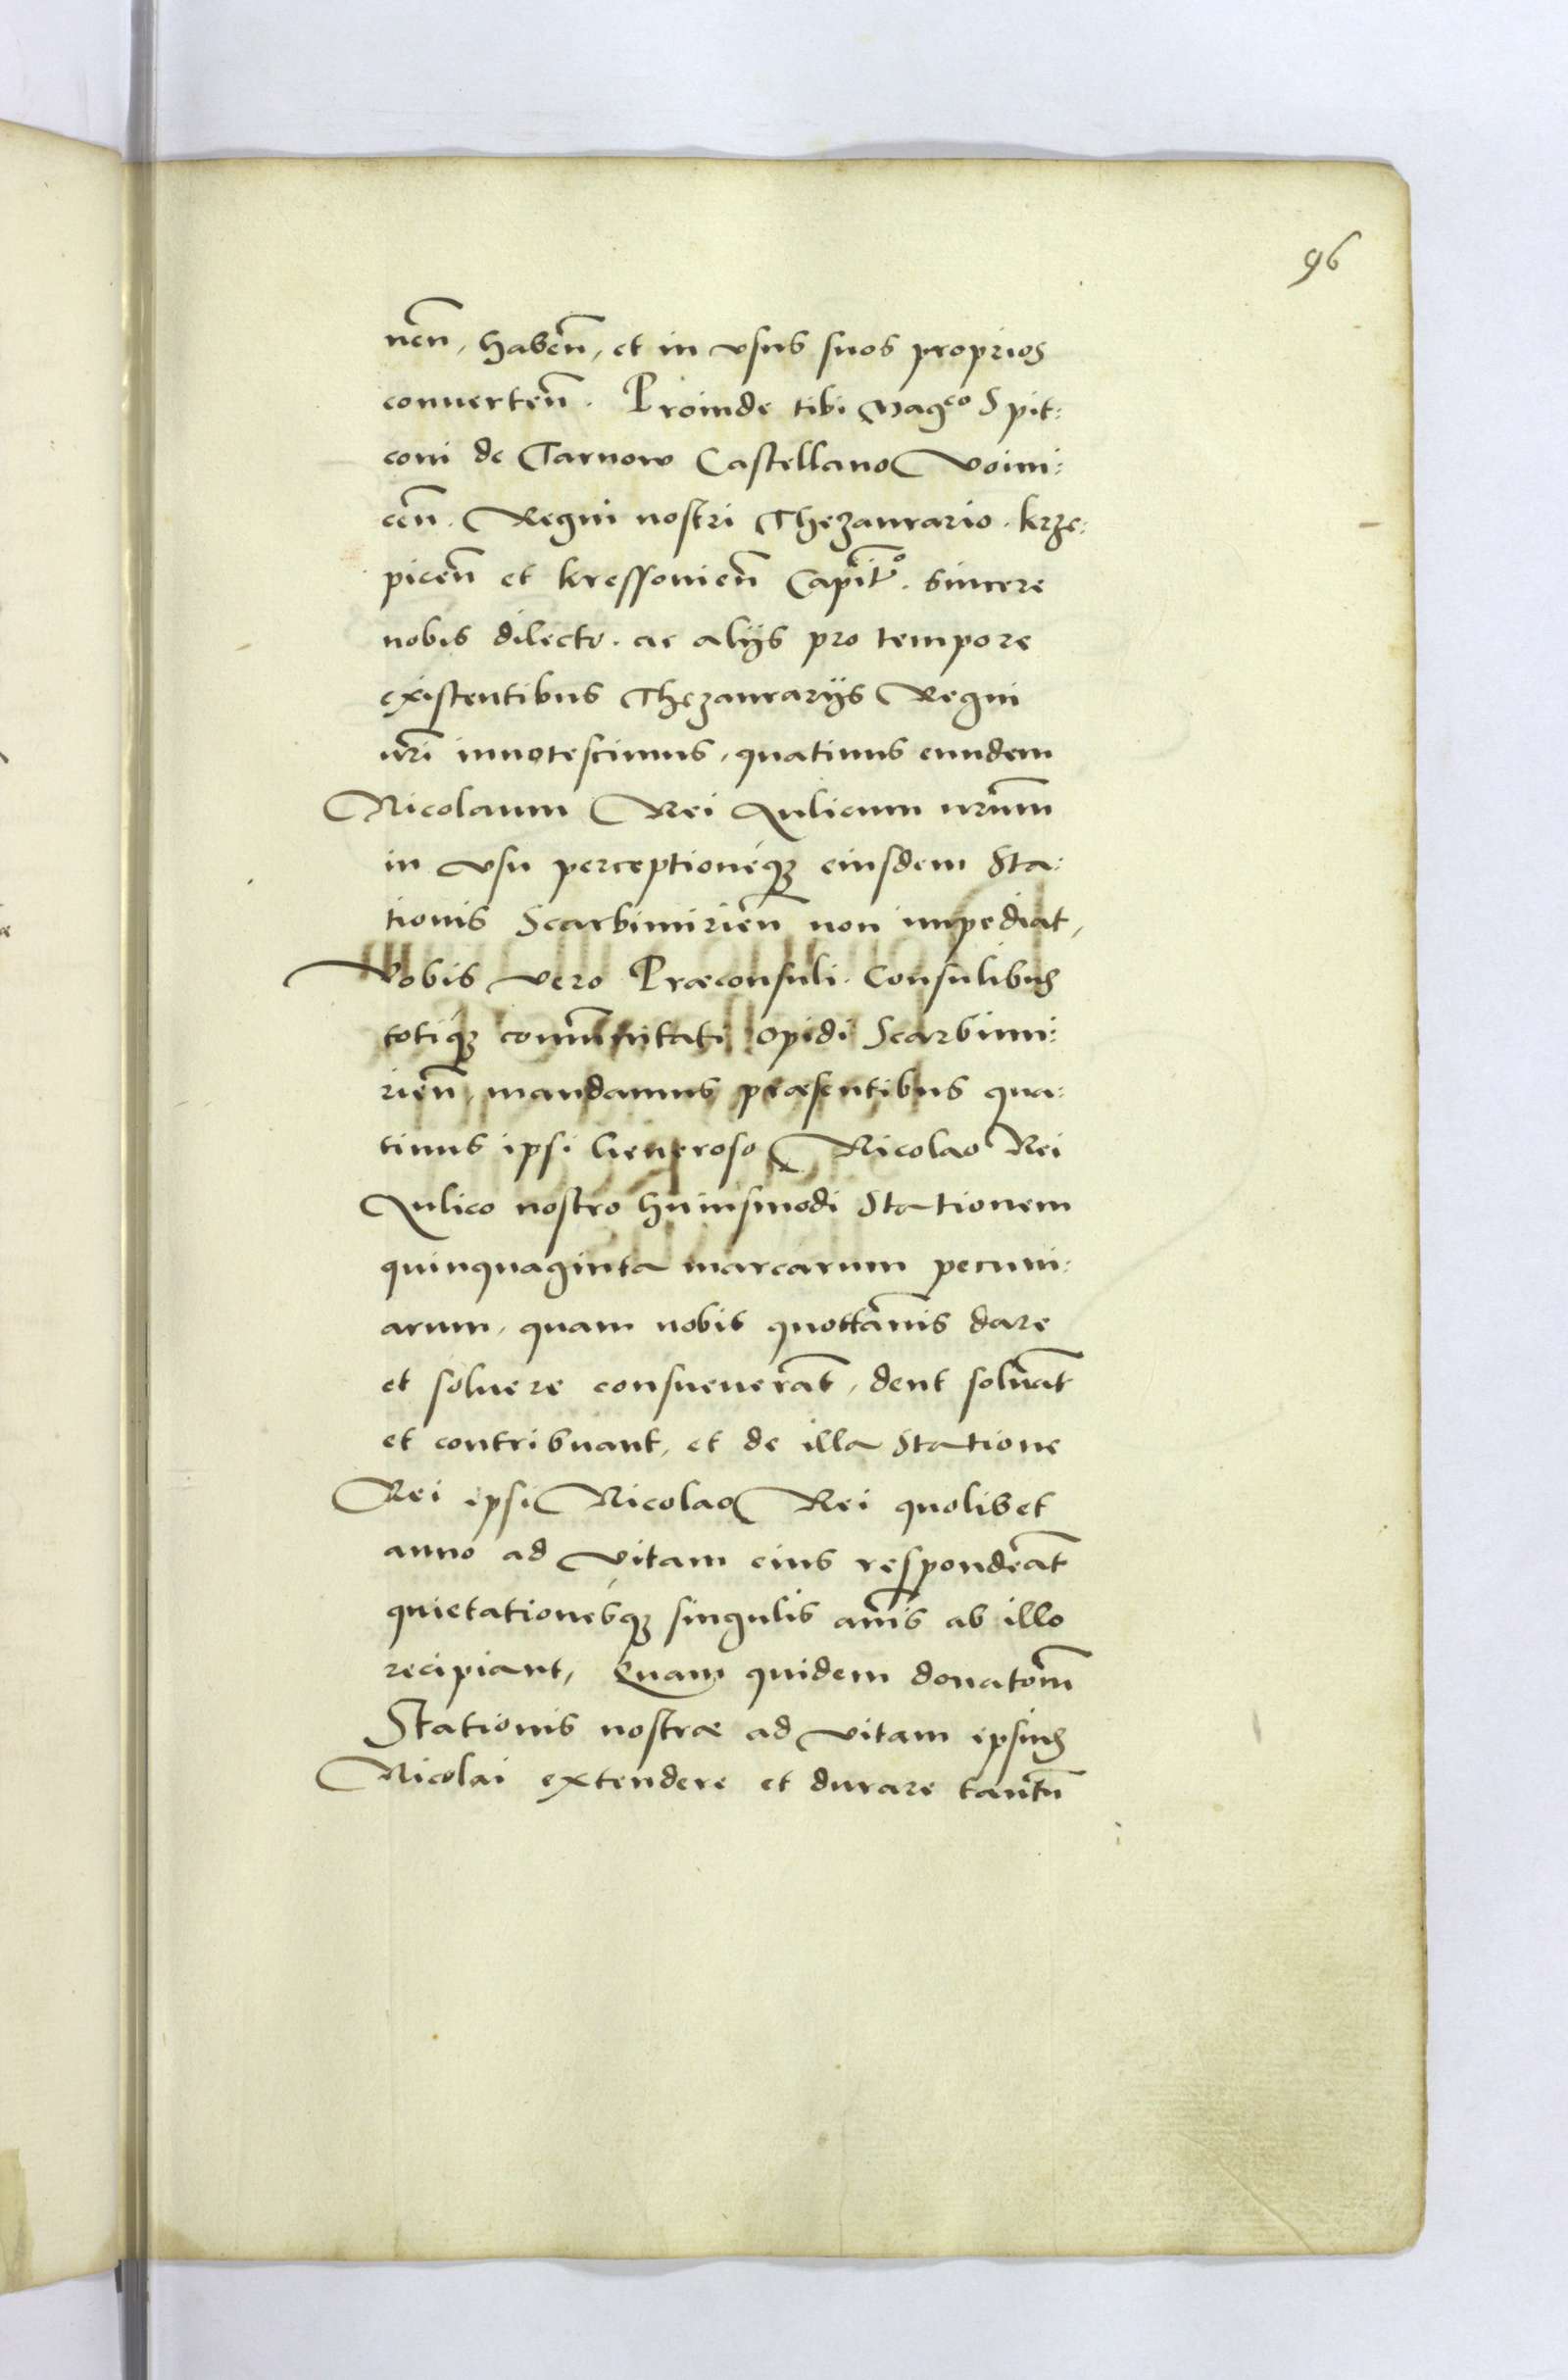 96
neñ, habeñ, et in vsus suos proprios
conuerteñ. Proinde tibi Mag^co Spit:
coni de Tarnow Castellano Voini:
ceñ. Regni nostri Thezaurario. krze:
piceñ et kressouieñ Capit̃o. sincere
nobis dilecto. ac alijs pro tempore
existentibus Thezaurarijs Regni
nr̃i innotescimus, quatinus eundem
Nicolaum Rei Aulicum nrũm
in vsu perceptioneq3 eiusdem Sta:
tionis Scarbimirieñ non impediat,
Vobis vero Præconsuli. Consulibus
totiq3 com̃unitati Opidi Scarbimi:
rieñ, mandamus præsentibus qua:
tinus ipsi Generoso Nicolao Rei
Aulico nostro huiusmodi Stationem
quinquaginta marcarum pecuni:
arum, quam nobis quottañis dare
et soluere consueuerãt, dent soluãt
et contribuant, et de illa Statione
Rei ipsi Nicolao Rei quolibet
anno ad vitam eius respondeãt
quietationesq3 singulis añis ab illo
recipiant, Quam quidem donatom̃
Stationis nostræ ad vitam ipsius
Nicolai extendere et durare tantũ